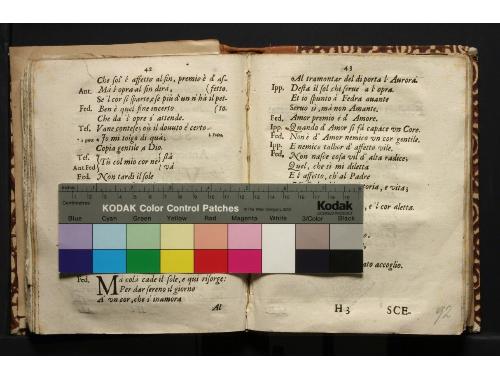 42
Che sol' è affetto al fin, premio è d' af-
Ant. Mà è opra al fin dira, (fetto.
Se 'l cor si sparte, se più d' un n' hà il pet-
Fed. Ben è quel fine incerto (to.
Che da l' opre s' attende.
Tes. Vane contese où il douuto è certo
Io mi tolgo di quà;
Copia gentile a Dio.
Tes. Tù col mio cor ne stà
Ant Fed và
Fed. Non tardi il sole
Fed. Mà colà cade il sole, e qui risorge:
Per dar sereno il giorno
A vn cor, che s' inamora
Al
43
Al tramontar del dì porta l' Aurora.
Ipp. Desta il sol che serue a l' opra.
Et io spunto d' Fedra auante
Seruo sì, mà non Amante.
Fed. Amor premio è d' Amore.
Ipp. Quando d' Amor si fà capace vn Core.
Fed. Non è d' Amor nemico vn cor gentile.
Ipp. E nemico talhor d' affetto vile.
Fed. Non nasce cosa vil d' alta radice;
Quel, che sì mi diletta
E l' affetto, ch' al Padre
toria, e vita;
e 'l cor aletta.
to accoglio.
H 3 SCE-
92
Inches
Centimetres
KODAK Color Control Patches
Kodak
LICENSED PRODUCT
Blue Cyan Green Yellow Red Magenta White 3/Color Black